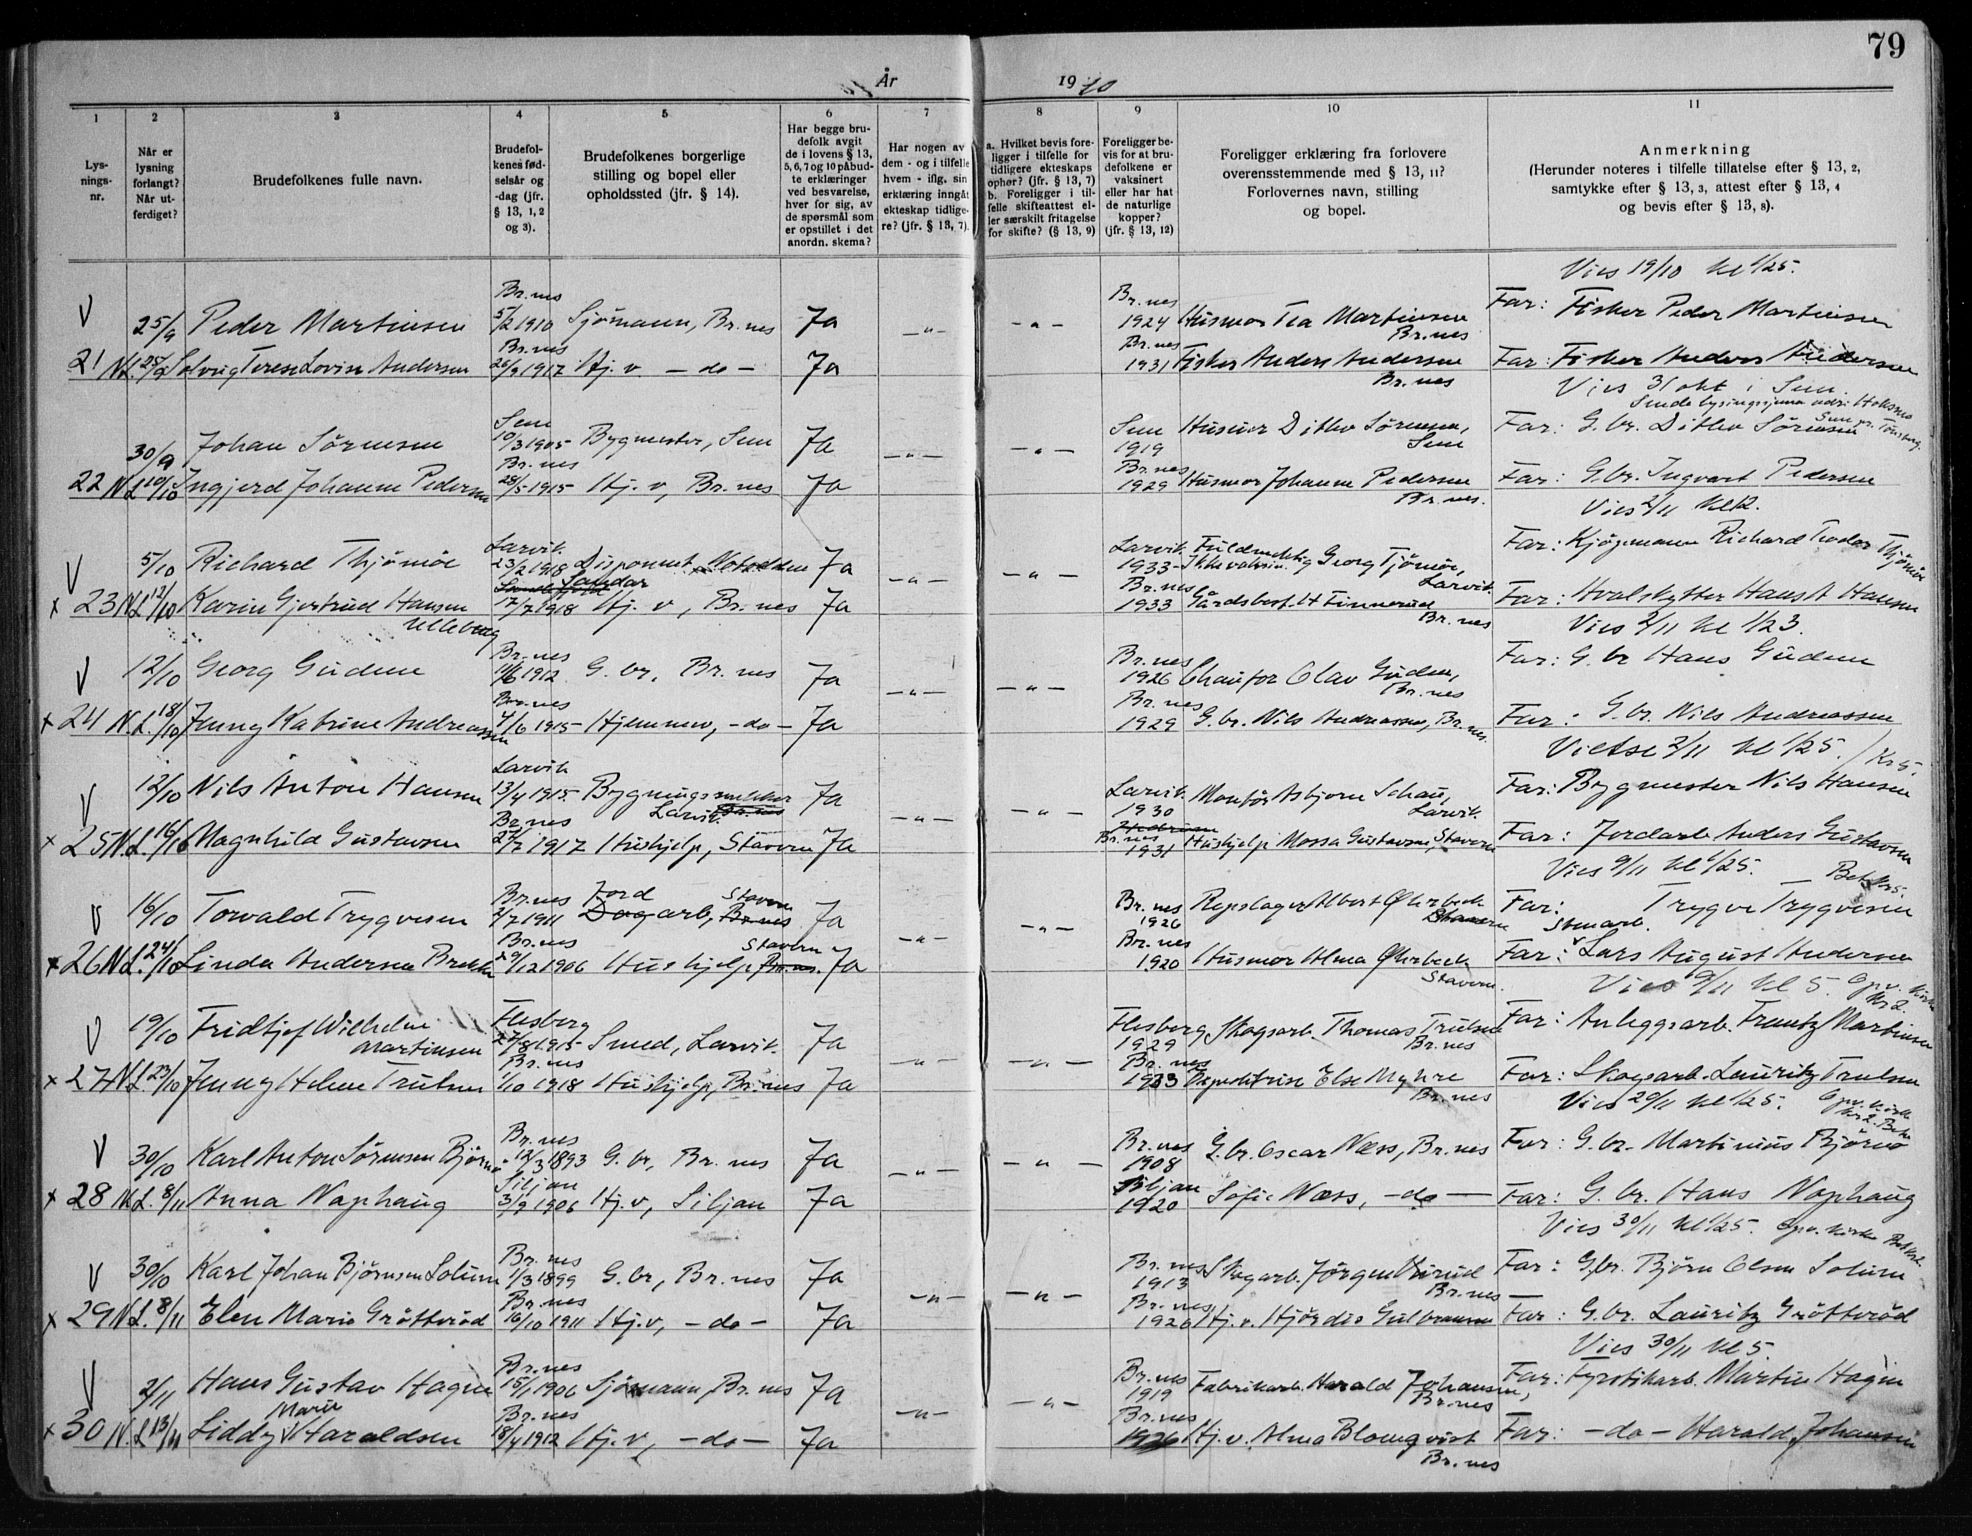 79
År 1940
1 2 3 4 5 6 7 8 9 10 11
Lysningsnr.
Når er lysning forlangt? Når utferdiget?
Brudefolkenes fulle navn.
Brudefolkenes fødselsår og -dag (jfr. § 13, 1, 2 og 3).
Brudefolkenes borgerlige stilling og bopel eller opholdssted (jfr. § 14).
Har begge brudefolk avgit de i lovens § 13, 5, 6, 7 og 10 påbudte erklæringer ved besvarelse, hver for sig, av de spørsmål som er opstillet i det anordn. skema?
Har nogen av dem - og i tilfelle hvem - iflg. sin erklæring inngått ekteskap tidligere? (jfr. § 13, 7).
a. Hvilket bevis foreligger i tilfelle for tidligere ekteskaps ophør? (jfr. § 13, 7) b. Foreligger i tilfelle skifteattest eller særskilt fritagelse for skifte? (§ 13, 9)
Foreligger bevis for at brudefolkene er vaksinert eller har hat de naturlige kopper? (jfr. § 13, 12)
Foreligger erklæring fra forlovere overensstemmende med § 13, 11? Forlovernes navn, stilling og bopel.
Anmerkning (Herunder noteres i tilfelle tillatelse efter § 13, 2, samtykke efter § 13, 3, attest efter § 13, 4 og bevis efter § 13, 8).
Vies 19/10 kl 1/25.
V 25/9 Peder Martinsen Br.nes 5/2 1910 Sjömann, Br.nes Ja -"- -"- Br.nes 1924 Husmor Tea Martinsen Br.nes Far: Fisker Peder Martinsen
21 N.L. Solveig Terese Lovise Andersen Br.nes 1917 Hj.v. -do- Ja Br.nes 1931 Fisker Anders Andersen Br.nes Far: Fisker Anders Andersen
Vies 31 okt i Sem.
30/9 Johan Sörensen Sem 10/3 1905 Bygmester, Sem Ja -"- -"- Sem 1919 Husmor Ditlev Sörensen, Sem Far: G.br. Ditlev Sörensen
22 N.L. 10/10 Ingjerd Johanne Pedersen Br.nes 28/5 1915 Hj.v, Br.nes Ja Br.nes 1929 Husmor Johanne Pedersen Br.nes. Far: G.br. Ingvart Pedersen
Vies 2/11 kl 2.
V 5/10 Richard Thjömöe Larvik 23/2 1918 Disponent, Notodden Ja -"- -"- Larvik 1933 Fuldmektig Georg Tjömöe, Larvik. Far: Kjöpmann Richard Teodor Thjömöe
x 23 N.L. 12/10 Karin Gjertrud Hansen Ulleberg Sandar 17/7 1918 Hj.v, Br.nes Ja Br.nes 1933 Gårdsbest. H Finnerud Br.nes Far: Hvalskytter Hans A Hansen
Vies 2/11 kl 1/23.
V 12/10 Georg Gudem Br.nes 1912 G.br, Br.nes Ja -"- -"- Br.nes 1926 Chaufør Olav Gudem, Br.nes Far: G.br Hans Gudem
x 24 N.L. 18/10 Jenny Katrine Andreassen Br.nes 4/6 1915 Hjemmev, -do- Ja Br.nes 1929 G.br. Nils Andreassen, Br.nes. Far: G.br. Nils Andreassen
Vietse 2/11 kl 1/25. Kr 5.
V 12/10 Nils Anton Hansen Larvik 13/4 1915 Bygningssnekker Larvik Br.nes Ja -"- -"- Larvik 1930 Montör Asbjorn Schau, Larvik. Far: Bygmester Nils Hansen
x 25 N.L. 16/10 Magnhild Gustavsen Br.nes 1917 Hushjelp, Stavern Ja Hedrum Br.nes 1931 Hushjelp Mossa Gustavsen, Stavern Far: Jordarb. Anders Gustavsen
Vies 9/11 kl 1/25. Bet. Kr 5.
V 16/10 Torvald Trygvesen Br.nes 2/7 1911 Jord Dagarb, Stavern Br.nes Ja -"- -"- Br.nes 1926 Repslager Albert Øhrbeck Stavern Far: Trygve Trygvesen
x 26 N.L. 24/10 Linda Andersen Brekke Br.nes 1906 Hushjelp Stavern Br.nes. Ja Br.nes 1920 Husmor Alma Øhrbeck Stavern. Far: Stenarb. Lars August Andersen
Vies 9/11 kl 5. Opv. kirke Kr 2
V 19/10 Fridtjof Wilhelm Martinsen Flesberg 27/8 1915 Smed, Larvik. Ja -"- -"- Flesberg 1929 Skogsarb. Thomas Trulsen Br.nes Far: Anleggsarb. Frantz Martinsen
x 27 N.L. 23/10 Jenny Helene Trulsen Br.nes 1/10 1918 Hushjelp, Br.nes Ja Br.nes 1933 Expeditrise Else Myhre Br.nes Far: Skogsarb. Lauritz Trulsen
Vies 20/11 kl 1/25. Opv. kirke Kr 2. Bet.
V 30/10 Karl Anton Sörensen Björnö Br.nes 12/3 1893 G.br, Br.nes Ja -"- -"- Br.nes 1908 G.br. Oscar Næss, Br.nes Far: G.br. Martinius Björnö
x 28 N.L. 8/11 Anna Naphaug Siljan 3/9 1906 Hj.v, Siljan Ja Siljan 1920 Sofie Næss, -do- Far: G.br. Hans Naphaug
Vies 30/11 kl 1/25. Opv. kirke Bet.
V 30/10 Karl Johan Björnsen Solum Br.nes 1/3 1899 G.br, Br.nes Ja -"- -"- Br.nes 1913 Skogarb. Jörgen Br.nes Far: G.br. Björn Olsen Solum
x 29 N.L. 8/11 Elen Marie Gröttröd Br.nes 16/10 1911 Hj.v, -do- Ja Br.nes 1926 Hj.v. Hjördis Gulbransen Far: G.br. Lauritz Gröttröd
Vies 30/11 kl 5.
V 2/11 Hans Gustav Hagen Br.nes 15/1 1906 Sjömann, Br.nes Ja -"- -"- Br.nes 1919 Fabrikarb. Harald Johansen, Br.nes Far: Fyrstikarb. Martin Hagen
x 30 N.L. 13/11 Liddy Marie Haraldsen Br.nes 18/4 1912 Hj.v, -do- Ja Br.nes 1926 Hj.v. Alma Blomqvist Br.nes Far: -do- Harald Johansen